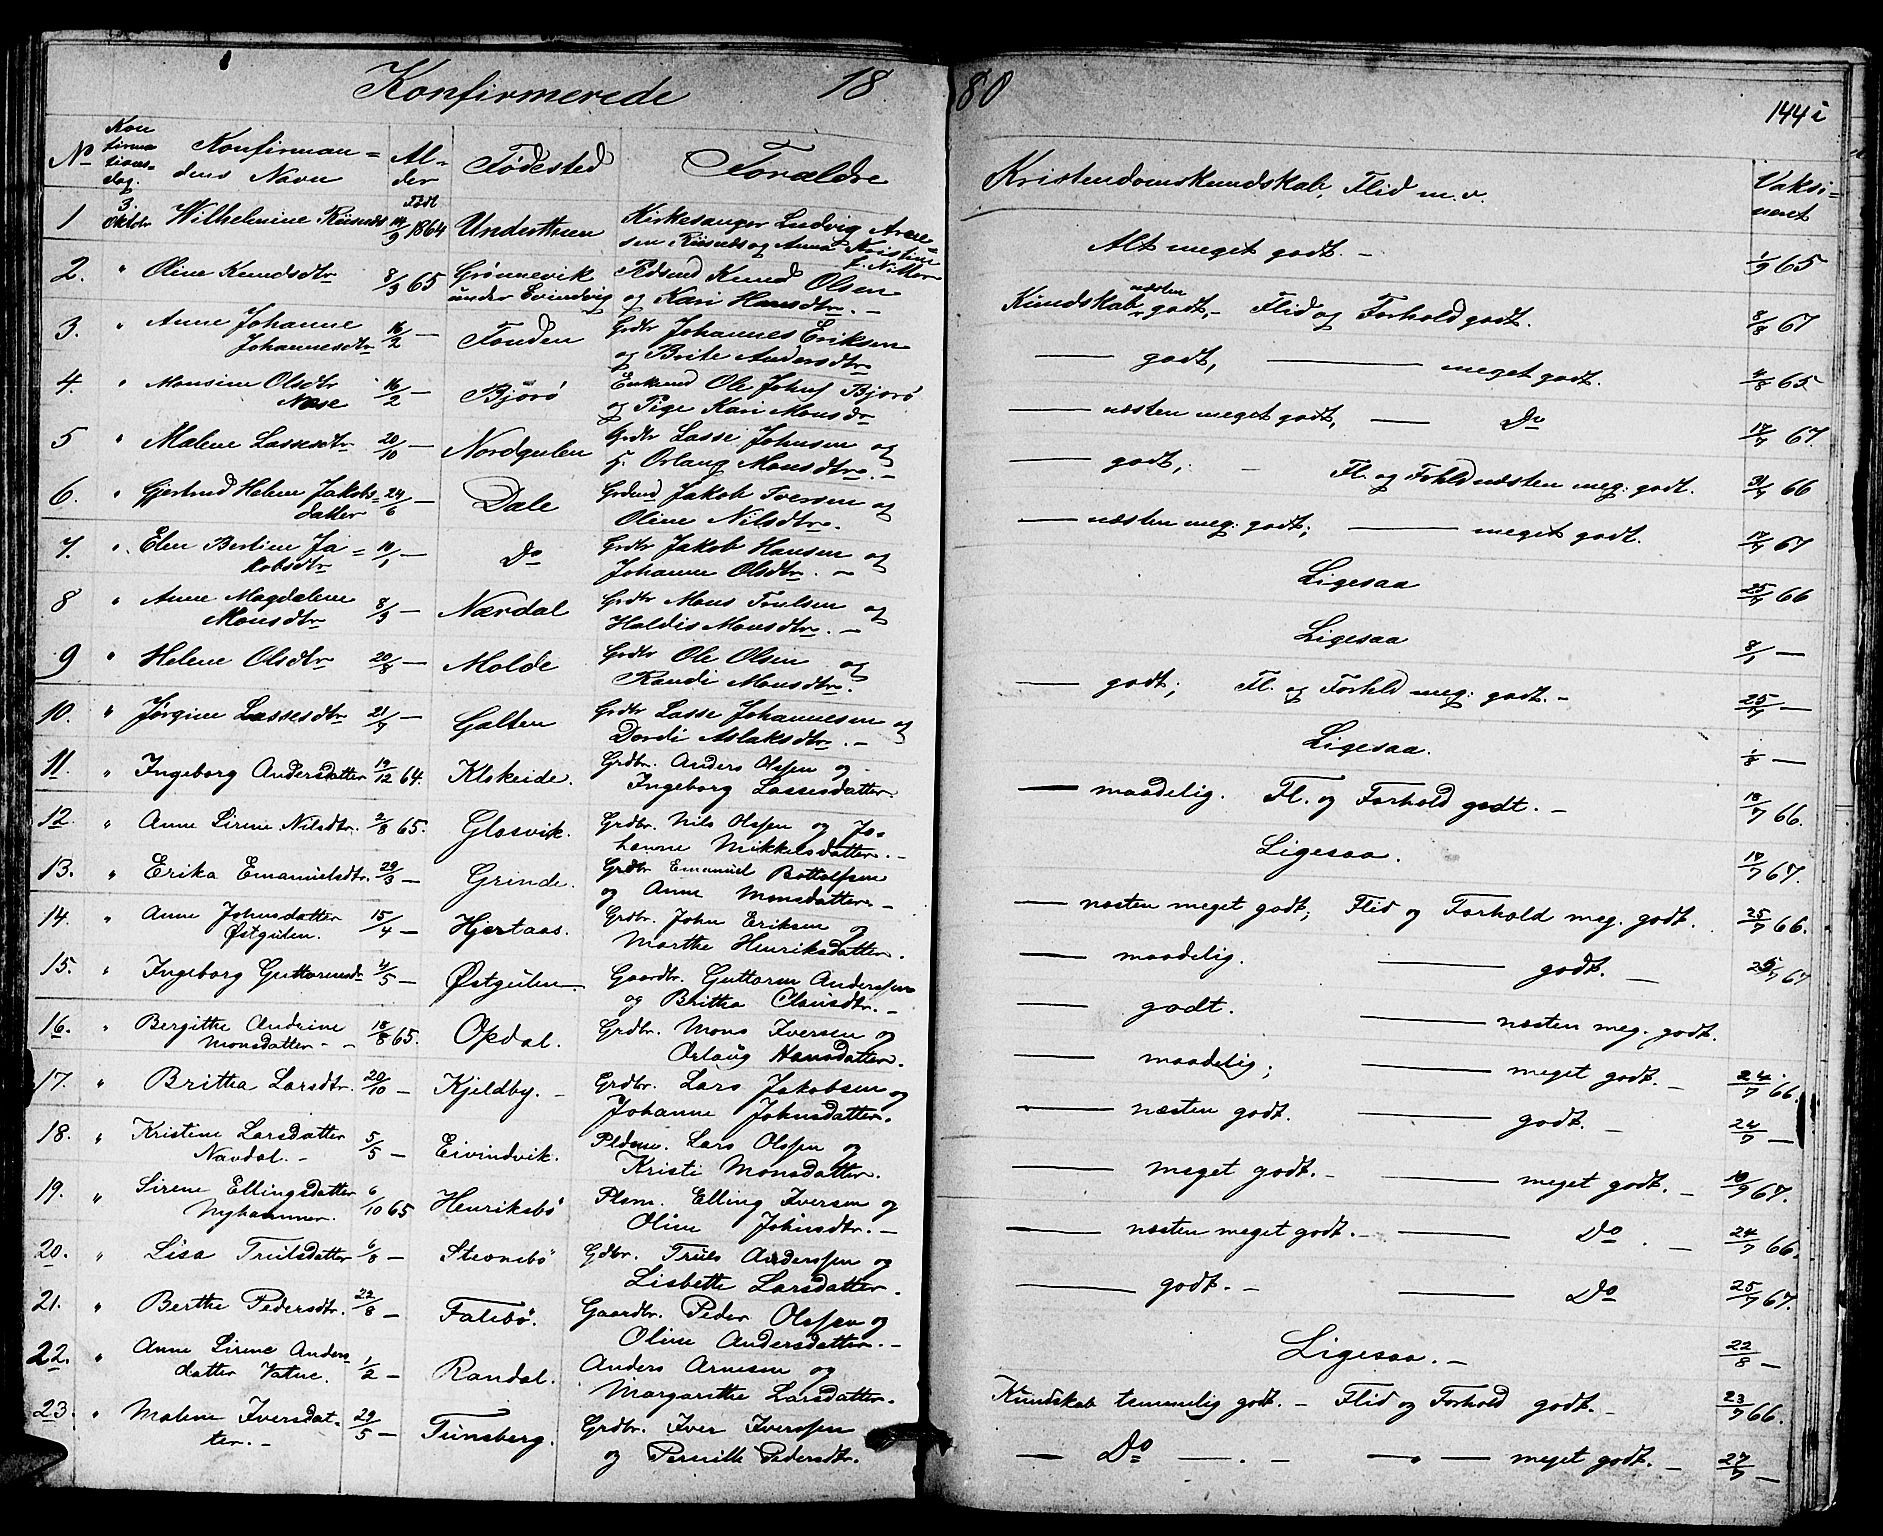 Konfirmerede 1880
144 i
No Konfirmationsdag. Konfirmandens Navn Alder Fødested Forældre Kristendomskundskab, Flid m. v. Vaksineret
Født
1 3. Oktobr Wilhelmine Riisnæs 14/9 1864 Underthun Kirkesanger Ludvig Arne=
sen Riisnæs og Anna Kristine Alt meget godt. - 1/9 65
2. " Oline Knudsdtr 8/9 65 Grønnevik Pldsmd Knud Olsen
under Evindvig og Kari Hansdtr. - Kundskab næsten godt, - Flid og Forhold godt. 8/8 67
3. " Anne Johanne 16/2 — Fonden Grdbr Johannes Eriksen
Johannesdtr og Brite Andersdtr — godt, — meget godt. 4/8 65
4. " Monsine Olsdtr 16/2 — Bjørø Enkemd Ole Johns Bjørø
Næse og Pige Kari Monsdr — næsten meget godt, — Do 17/7 67.
5 " Malene Lassesdtr 20/10 — Nordgulen Grdbr Lasse Johnsen og
H. Orlaug Monsdtr. - — godt; - Fl. og Forhld næsten meg: godt. 31/7 66
6. " Gjertrud Helene Jakobs= 24/6 — Dale Grdmd Jakob Iversen og
datter Oline Nilsdtr. — næsten meg: godt; — meget godt. 17/7 67
7. " Elen Bertine Ja= 10/1 — Do Grdbr Jakob Hansen og
kobsdtr Johanne Olsdtr. - Ligesaa 25/7 66
8 " Anne Magdalene 8/3 — Nærdal Grdbr Mons Trulsen og
Monsdtr Haldis Monsdtr. - Ligesaa 8/1 —
9 " Helene Olsdtr 20/8 — Molde Grdbr Ole Olsen og
Randi Monsdtr. — godt; Fl. og Forhld meg: godt. - 25/7 —
10. " Jørgine Lassesdtr 21/7 — Galten Grdbr Lasse Johannesen og
Dordi Aslaksdtr. - Ligesaa. 1/8 —
11. " Ingeborg Andersdatter 19/12 64. Kloskeide. Grdbr. Anders Olssen og
Ingeborg Lassesdatter. — maadelig. Fl. og Forhold godt. - 18/7 66.
12. " Anne Sirene Nilsdtr. 2/8 65. Glosvik. Grdbr. Nils Olssen og Jo-
hanne Mikkelsdatter. - Ligesaa. 17/7 67.
13. " Erika Emanuelsdtr. 29/3 — Grinde. Grdbr Emanuel Bottolfsen
og Anne Monsdatter. - — næsten meget godt; Flid og Forhold meg. godt. 25/7 66.
14. " Anne Johnsdatter 15/4 — Hjertaas. Grdbr. John Eriksen og
Østgulen. Marthe Henriksdatter. — maadelig. — godt. - 25/7 67
15. " Ingeborg Guttormsdr 4/5 — Østgulen. Gaardbr. Guttorm Anderssen
og Brittha Clausdtr. - — godt. — næsten meg. godt.
16. " Bergitthe Andrine 18/8 65. Opdal. Grdbr. Mons Iversen og
Monsdatter - - Orlaug Hansdatter. — maadelig; — meget godt. - 24/7 66.
17. " Brittha Larsdtr. 20/10 — Kjeldby. - Grdbr. Lars Jakobsen og
Johanne Johnsdatter. — næsten godt. — godt. - 24/7 —
18. " Kristine Larsdatter 5/5 — Eivindvik. Pldsm. Lars Olssen og
Navdal. - Kristi Monsdatter. — meget godt. - — meget godt. - 10/9 67.
19. " Sirene Ellingsdatter 6/10 65 Henriksbø Plsm. Elling Iversen og
Nyhammer. Oline Johnsdtr. - — næsten meget godt. - — Do. - 24/7 66.
20. " Lisa Trulsdatter 6/8 — Stensebø Gdbr. Truls Anderssen og
Lisbetthe Larsdatter. — godt. - — Do 25/7 67.
21. " Berthe Pedersdtr. 22/8 — Falebø. Gaardbr. Peder Olssen og
Oline Andersdatter. - Ligesaa. - 22/8 —
22. " Anne Sirene Anders- 1/2 — Randal. Anders Arnesen og
datter Vatne. Margrethe Larsdatter. Kundskab temmelig godt. - Flid og Forhold godt. - 23/7 66.
23. " Malene Iversdat- 29/5 — Tunsberg. Grdbr. Iver Iverssen
ter. - og Pernille Pedersdtr. — Do — . - — " — meget godt. - 27/7 —